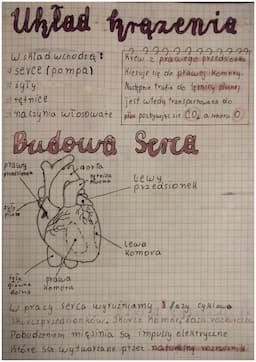 Układ krążenia
W skład wchodzą:
serce (pompa)
żyły
tętnice
naczynia włosowate
Krew z prawego przedsionka
kieruje się do prawej komory.
Następnie trafia do tętnicy płucnej
jest wtedy transportowana do
płuc pozbywając się CO₂ a wnika O
Budowa Serca
prawy
przedsionek
aorta
tętnica
płucna
Lewy
przedsionek
żyły
Lewa
komora
żyła
główna
dolna
prawa
komora
W pracy serca wyróżniamy 3 fazy cyklowe
Skurcz przedsionków, Skurcz komór, faza rozkurczu
Pobudzeniem mięśnia są impulsy elektryczne
które są wytwarzane przez naturalny rozrusznik